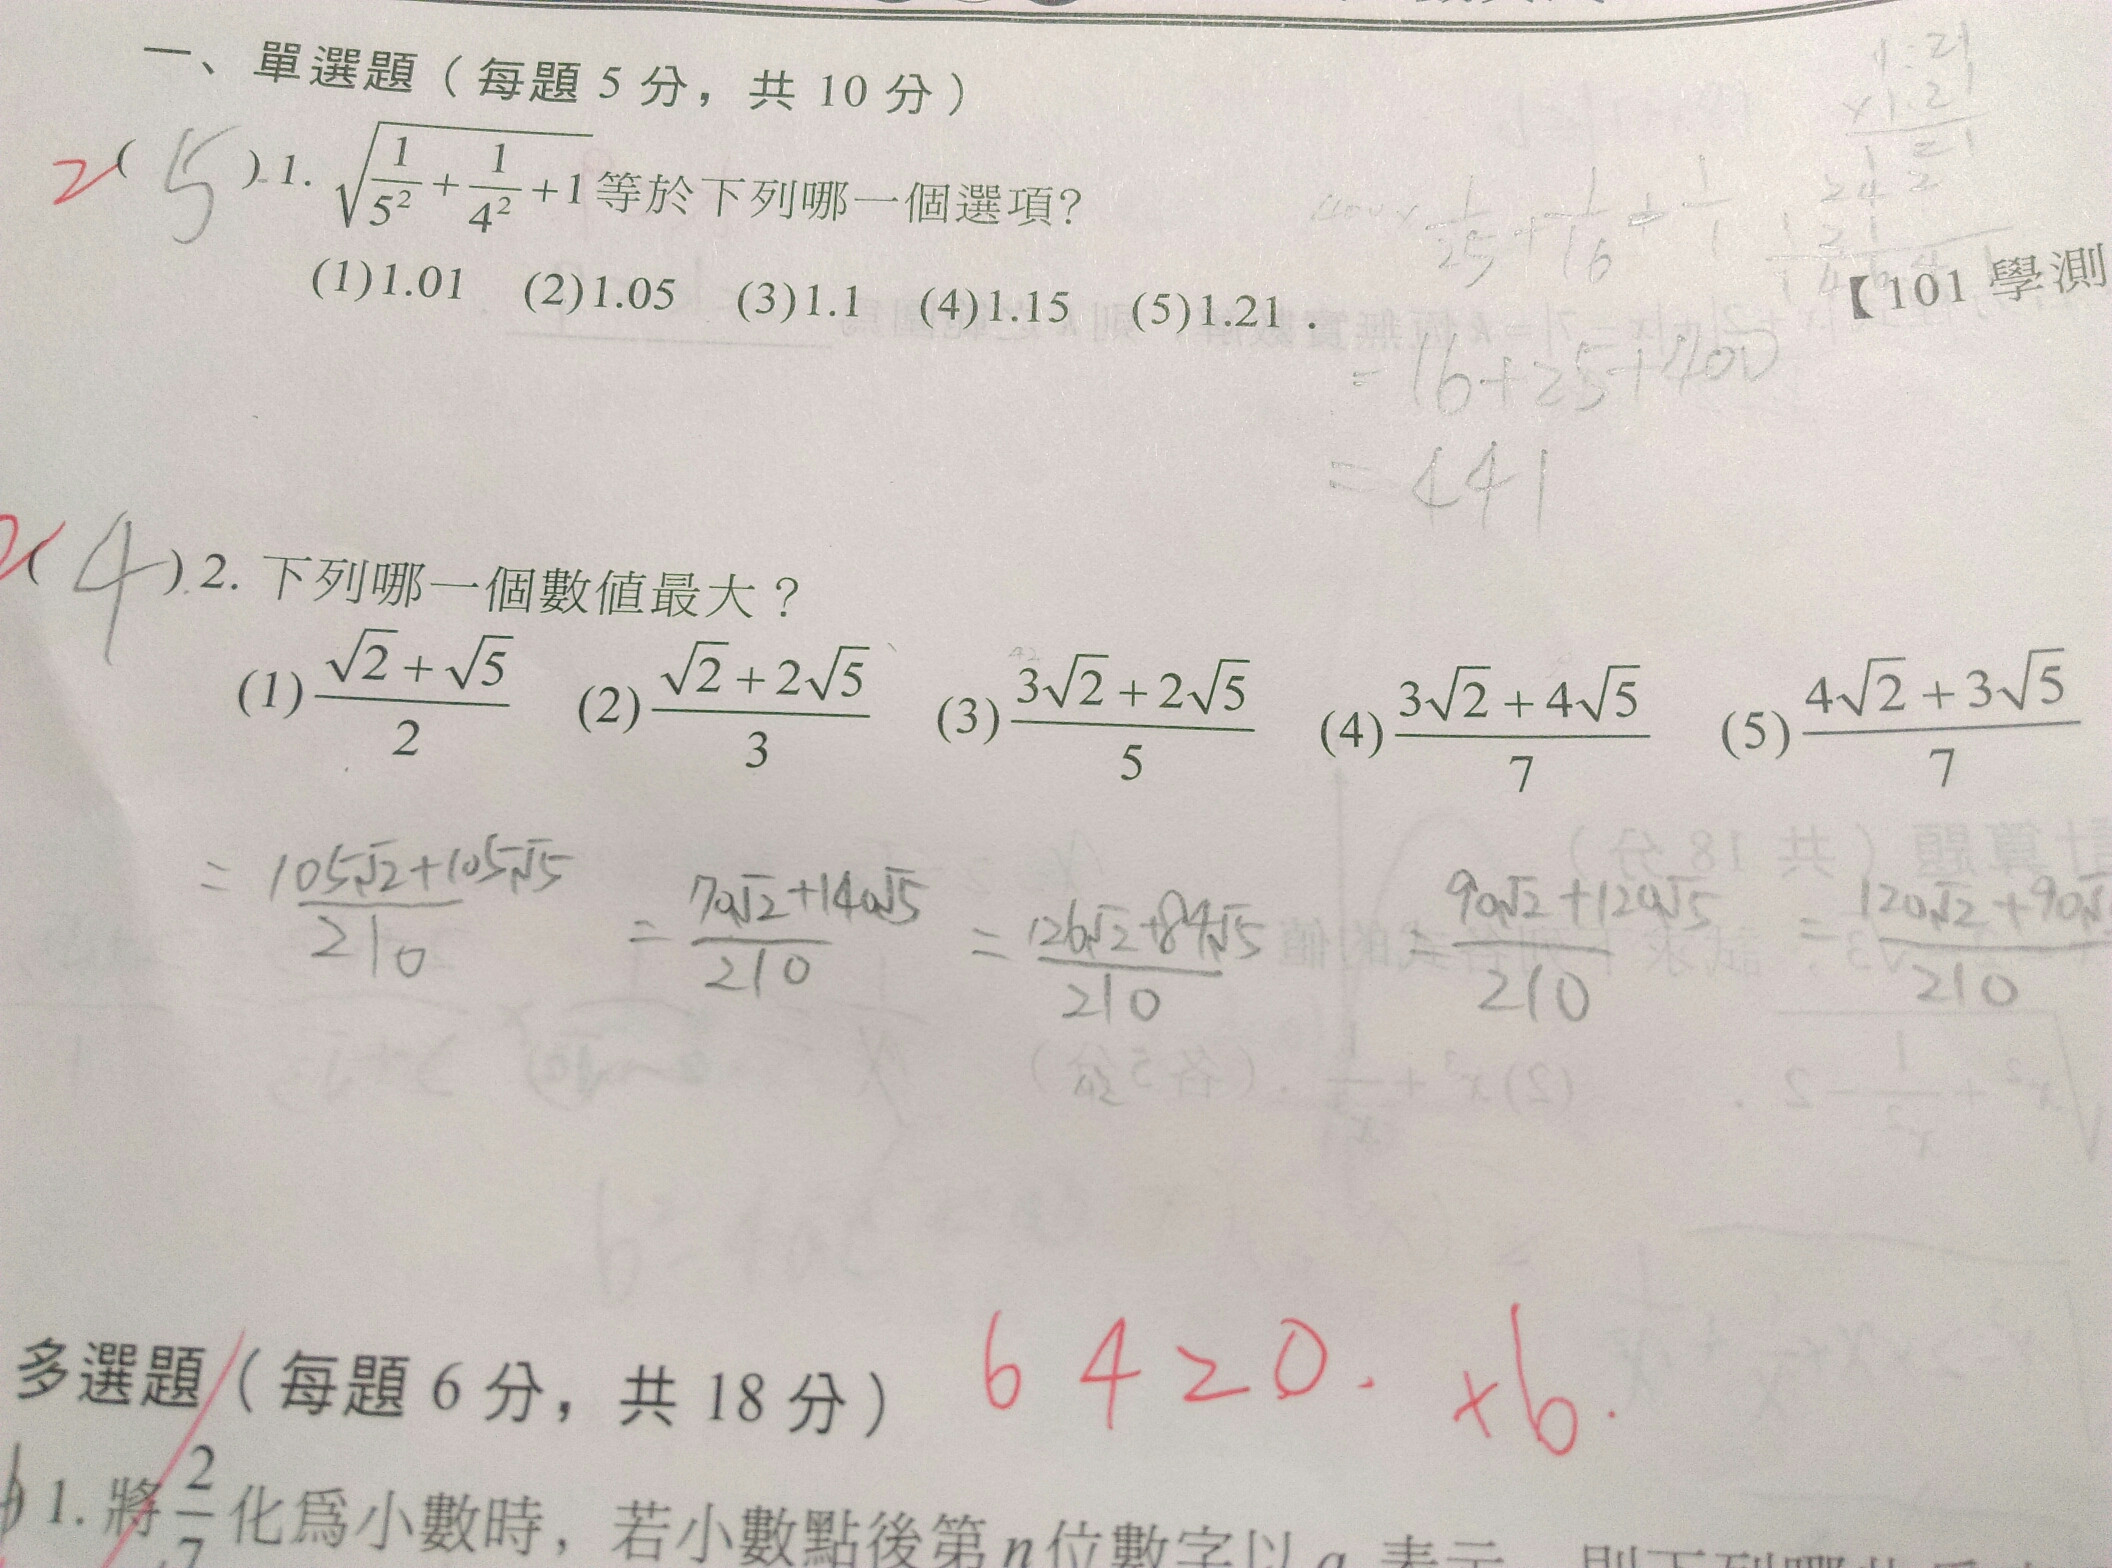 一、單選題（每題 5 分，共 10 分）
2( 5 ) 1. √(1/5² + 1/4² + 1) 等於下列哪一個選項?
(1)1.01 (2)1.05 (3)1.1 (4)1.15 (5)1.21．
【101 學測
1.21
×1.21
121
242
121
400× 1/25 + 1/16 + 1/1
= 16+25+400
= 441
2( 4 ) 2. 下列哪一個數值最大？
(1) (√2+√5)/2 (2) (√2+2√5)/3 (3) (3√2+2√5)/5 (4) (3√2+4√5)/7 (5) (4√2+3√5)/7
= (105√2+105√5)/210 = (70√2+140√5)/210 = (126√2+84√5)/210 = (90√2+120√5)/210 = (120√2+90√5)/210
多選題（每題 6 分，共 18 分） 6 4 2 0. ×6.
) 1. 將 2/7 化為小數時，若小數點後第 n 位數字以 a 表示